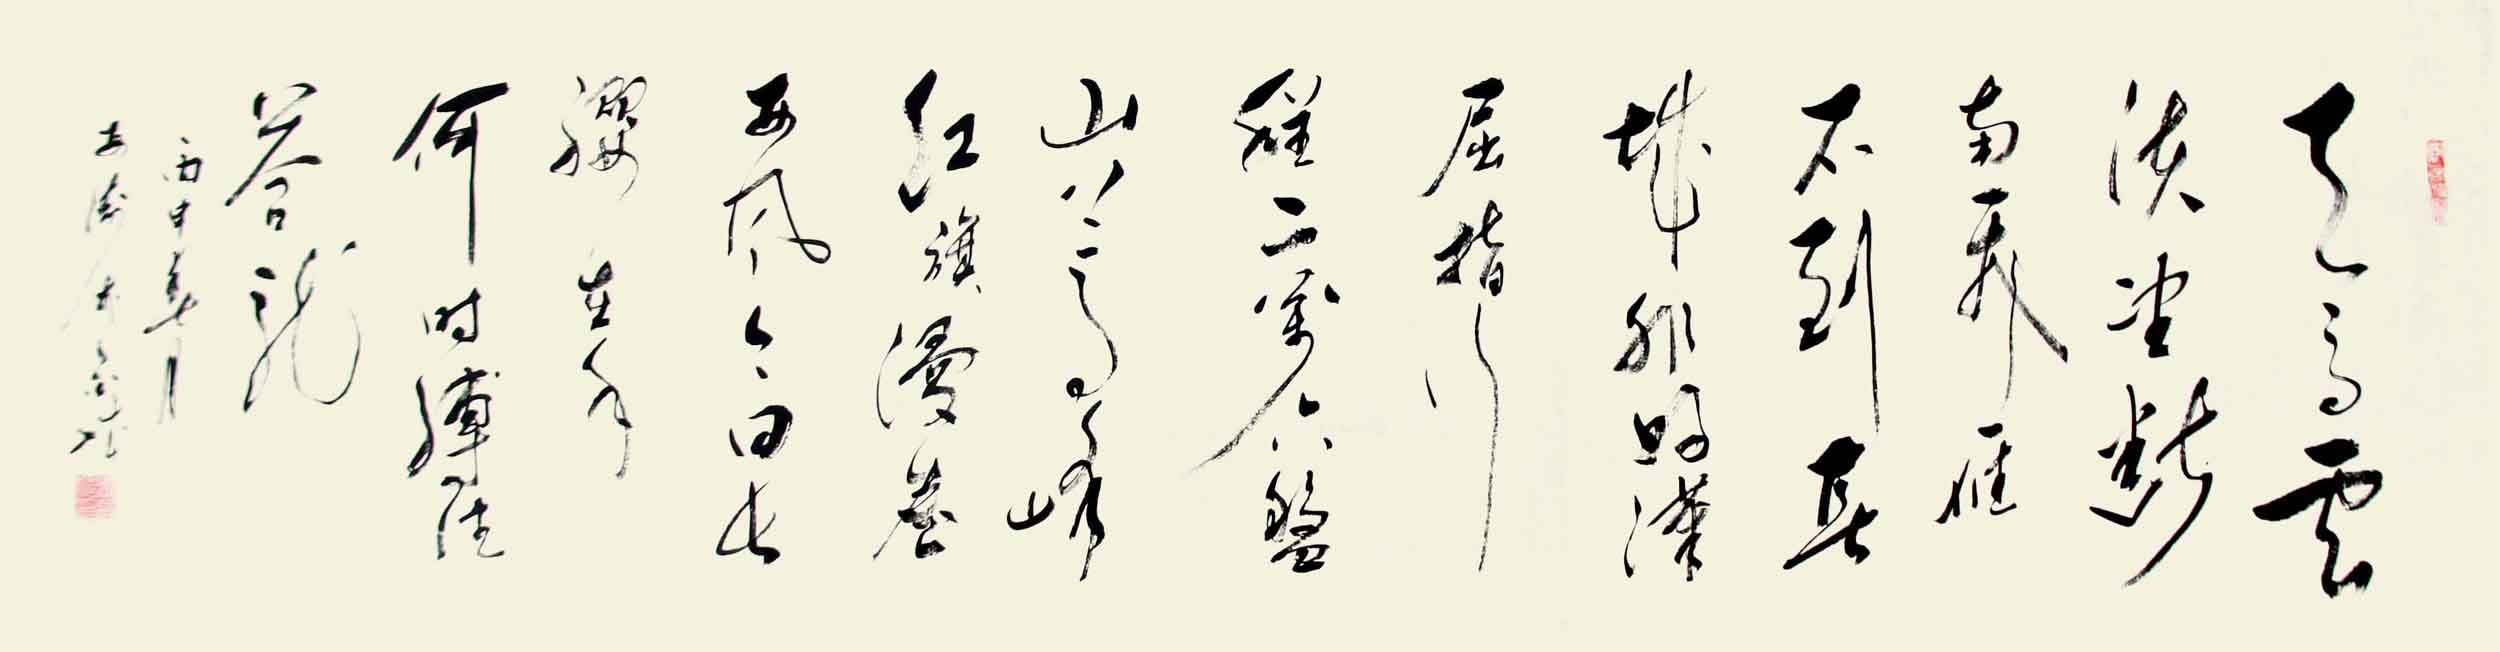 天高雲
淡望斷
南飛雁
不到長
城非好漢
屈指行
程二萬六盤
山上高峰
紅旗漫卷
西風今日長
纓在手
何时縛住
蒼龍
丙申